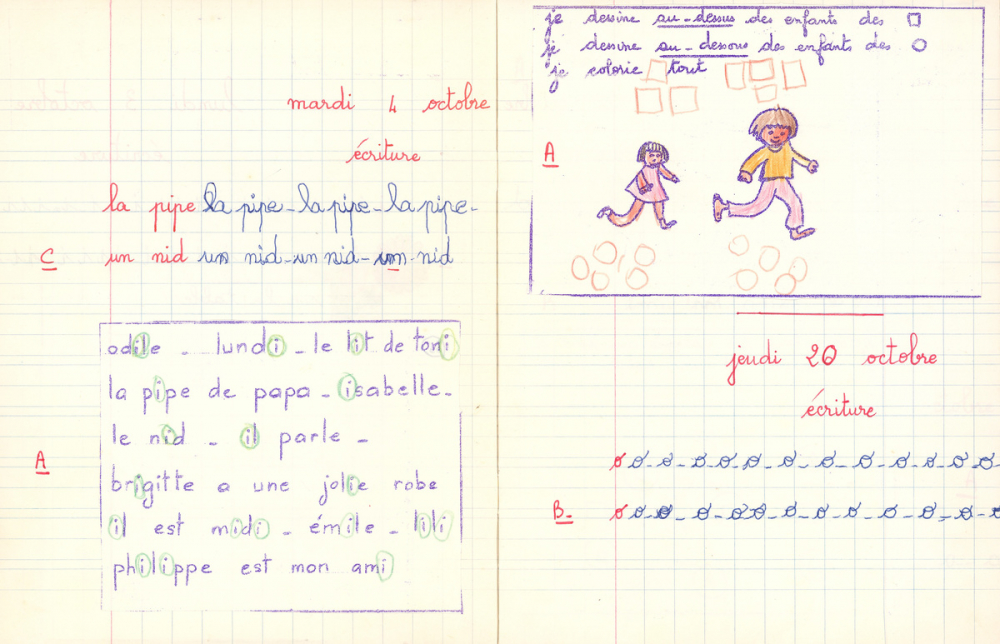 mardi 4 octobre
écriture
la pipe la pipe - la pipe - la pipe -
C un nid un nid - un nid - un nid
odile - lundi - le lit de toni
la pipe de papa - isabelle -
le nid - il parle -
A
brigitte a une jolie robe
il est midi - émile - lili
philippe est mon ami
je dessine au-dessus des enfants des
je dessine au-dessous des enfants des
je colorie tout
A
jeudi 20 octobre
écriture
B-